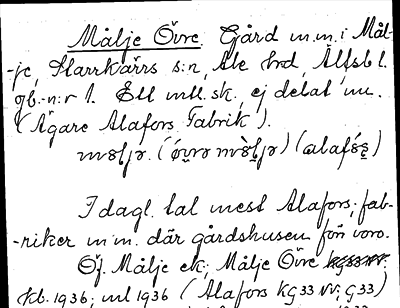 Målje Övre. Gård m.m. i Mål-
-je, Starrkärrs s:n, Ale hrd, Älfsb l.
gb.-n:r 1. Ett mtl. sk., ej delat nu.
(Ägare Alafors Fabrik).
I dagl. tal mest Alafors; fab-
-riker m.m. där gårdshusen förr voro.
Öf. Målje ek; Målje Övre
kb. 1936; ml 1936 (Alafors KG 33 NV; G33)